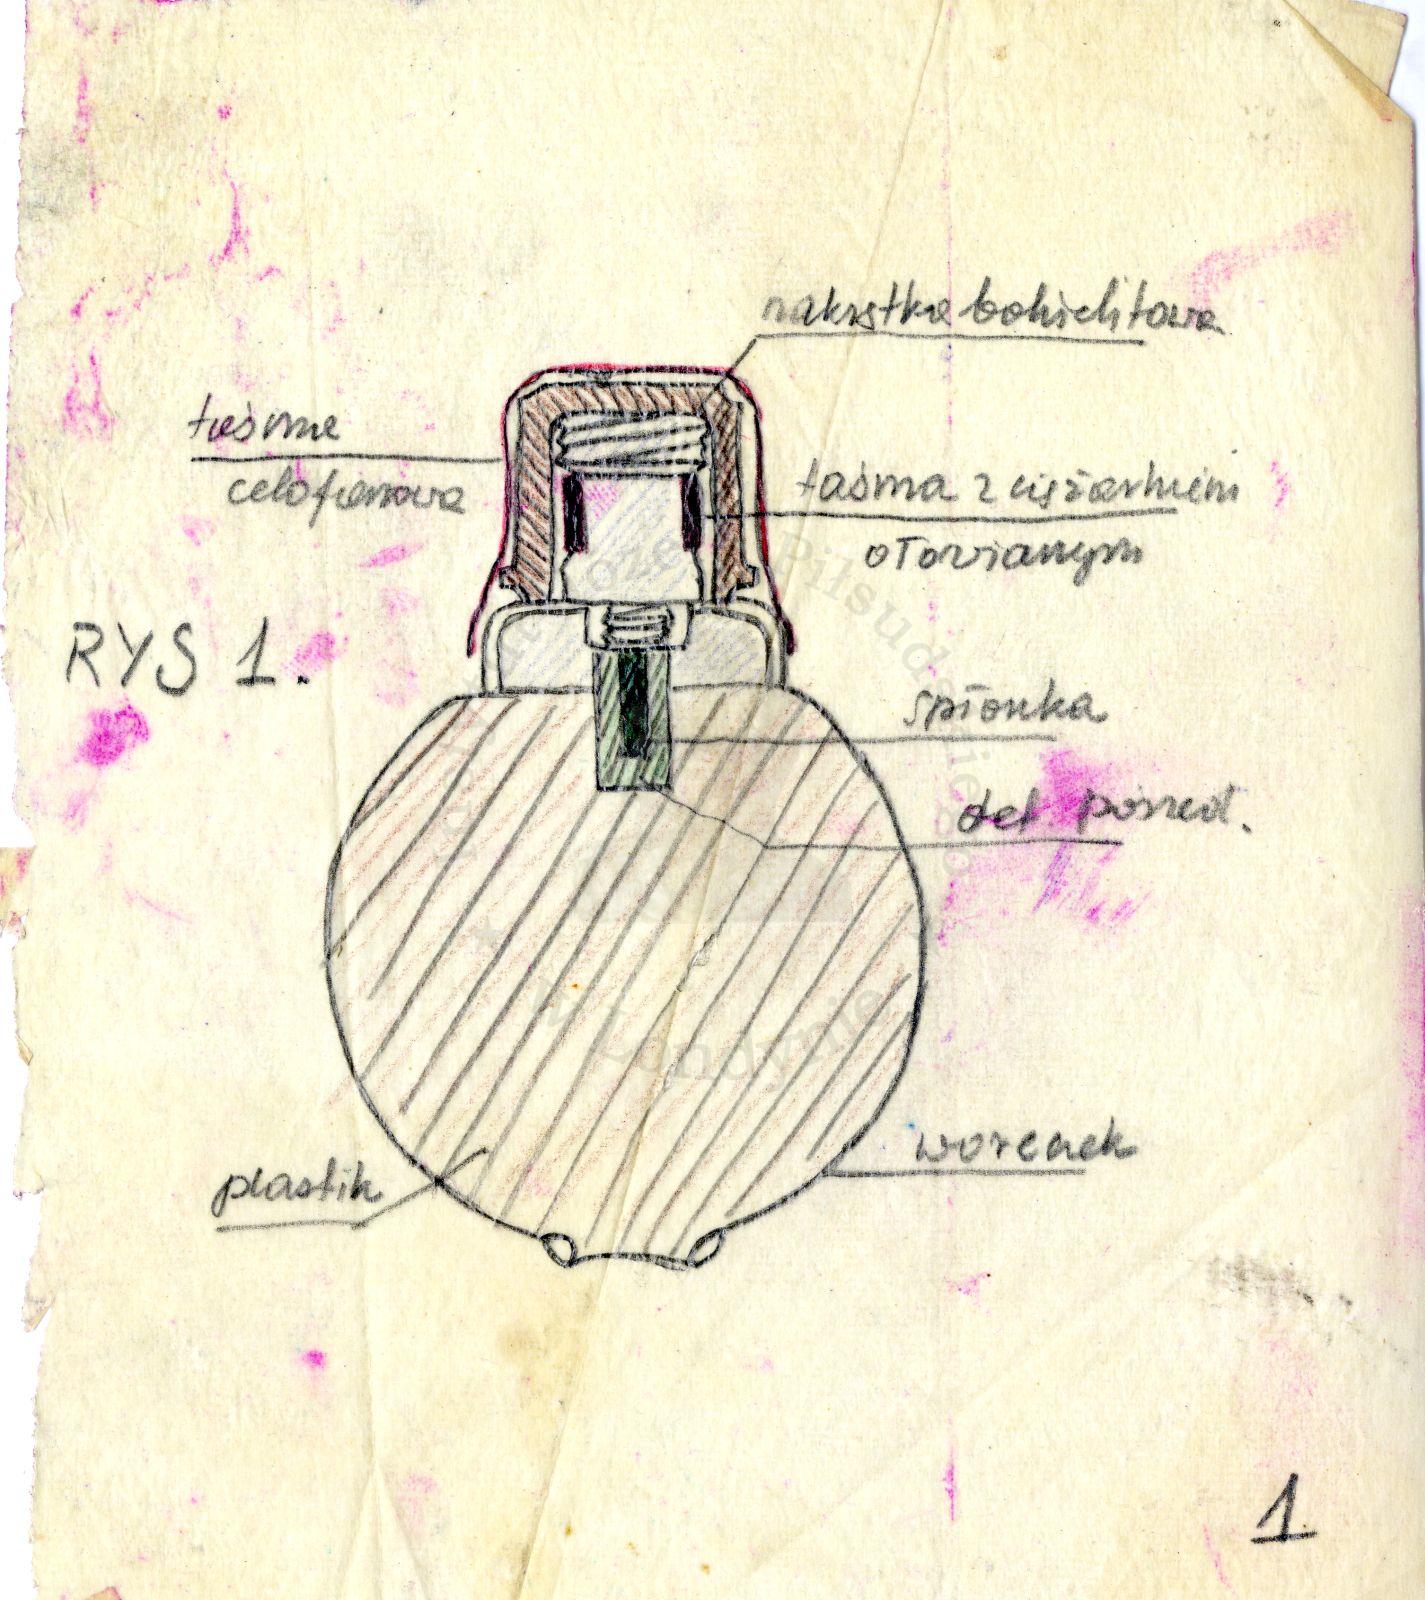 nakrętka bakielitowa
taśma
celofanowa
taśma z ciężarkiem
ołowianym
RYS 1.
spłonka
det pośred.
worenek
plastik
1.
Piłsudskiego
w Londynie